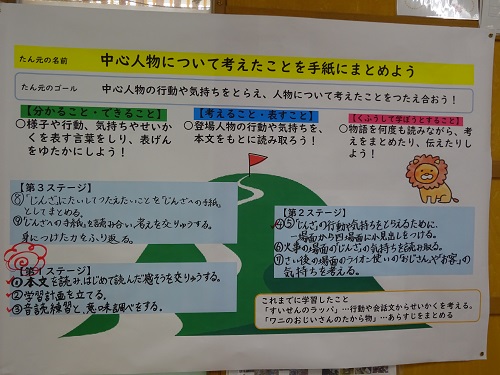 たん元の名前
中心人物について考えたことを手紙にまとめよう
たん元のゴール
中心人物の行動や気持ちをとらえ、人物について考えたことをつたえ合おう！
【分かること・できること】
○様子や行動、気持ちやせいか
くを表す言葉をしり、表げん
をゆたかにしよう！
【考えること・表すこと】
○登場人物の行動や気持ちを、
本文をもとに読み取ろう！
【くふうして学ぼうとすること】
○物語を何度も読みながら、考
えをまとめたり、伝えたりし
よう！
【第３ステージ】
⑧「じんざ」にたいしてつたえたいことを「じんざへの手紙」
としてまとめる。
⑨「じんざへの手紙」を読み合い、考えを交りゅうする。
身につけた力をふり返る。
【第２ステージ】
④⑤「じんざ」の行動や気持ちをとらえるために、
一場面から四場面に小見出しをつける。
⑥火事の場面の「じんざ」の気持ちを読み取る。
⑦さい後の場面のライオン使いの「おじさん」や「お客」の
気持ちを考える。
【第１ステージ】
①本文を読み、はじめて読んだ感そうを交りゅうする。
②学習計画を立てる。
③音読練習と、意味調べをする。
これまでに学習したこと
「すいせんのラッパ」…行動や会話文からせいかくを考える。
「ワニのおじいさんのたから物」…あらすじをまとめる